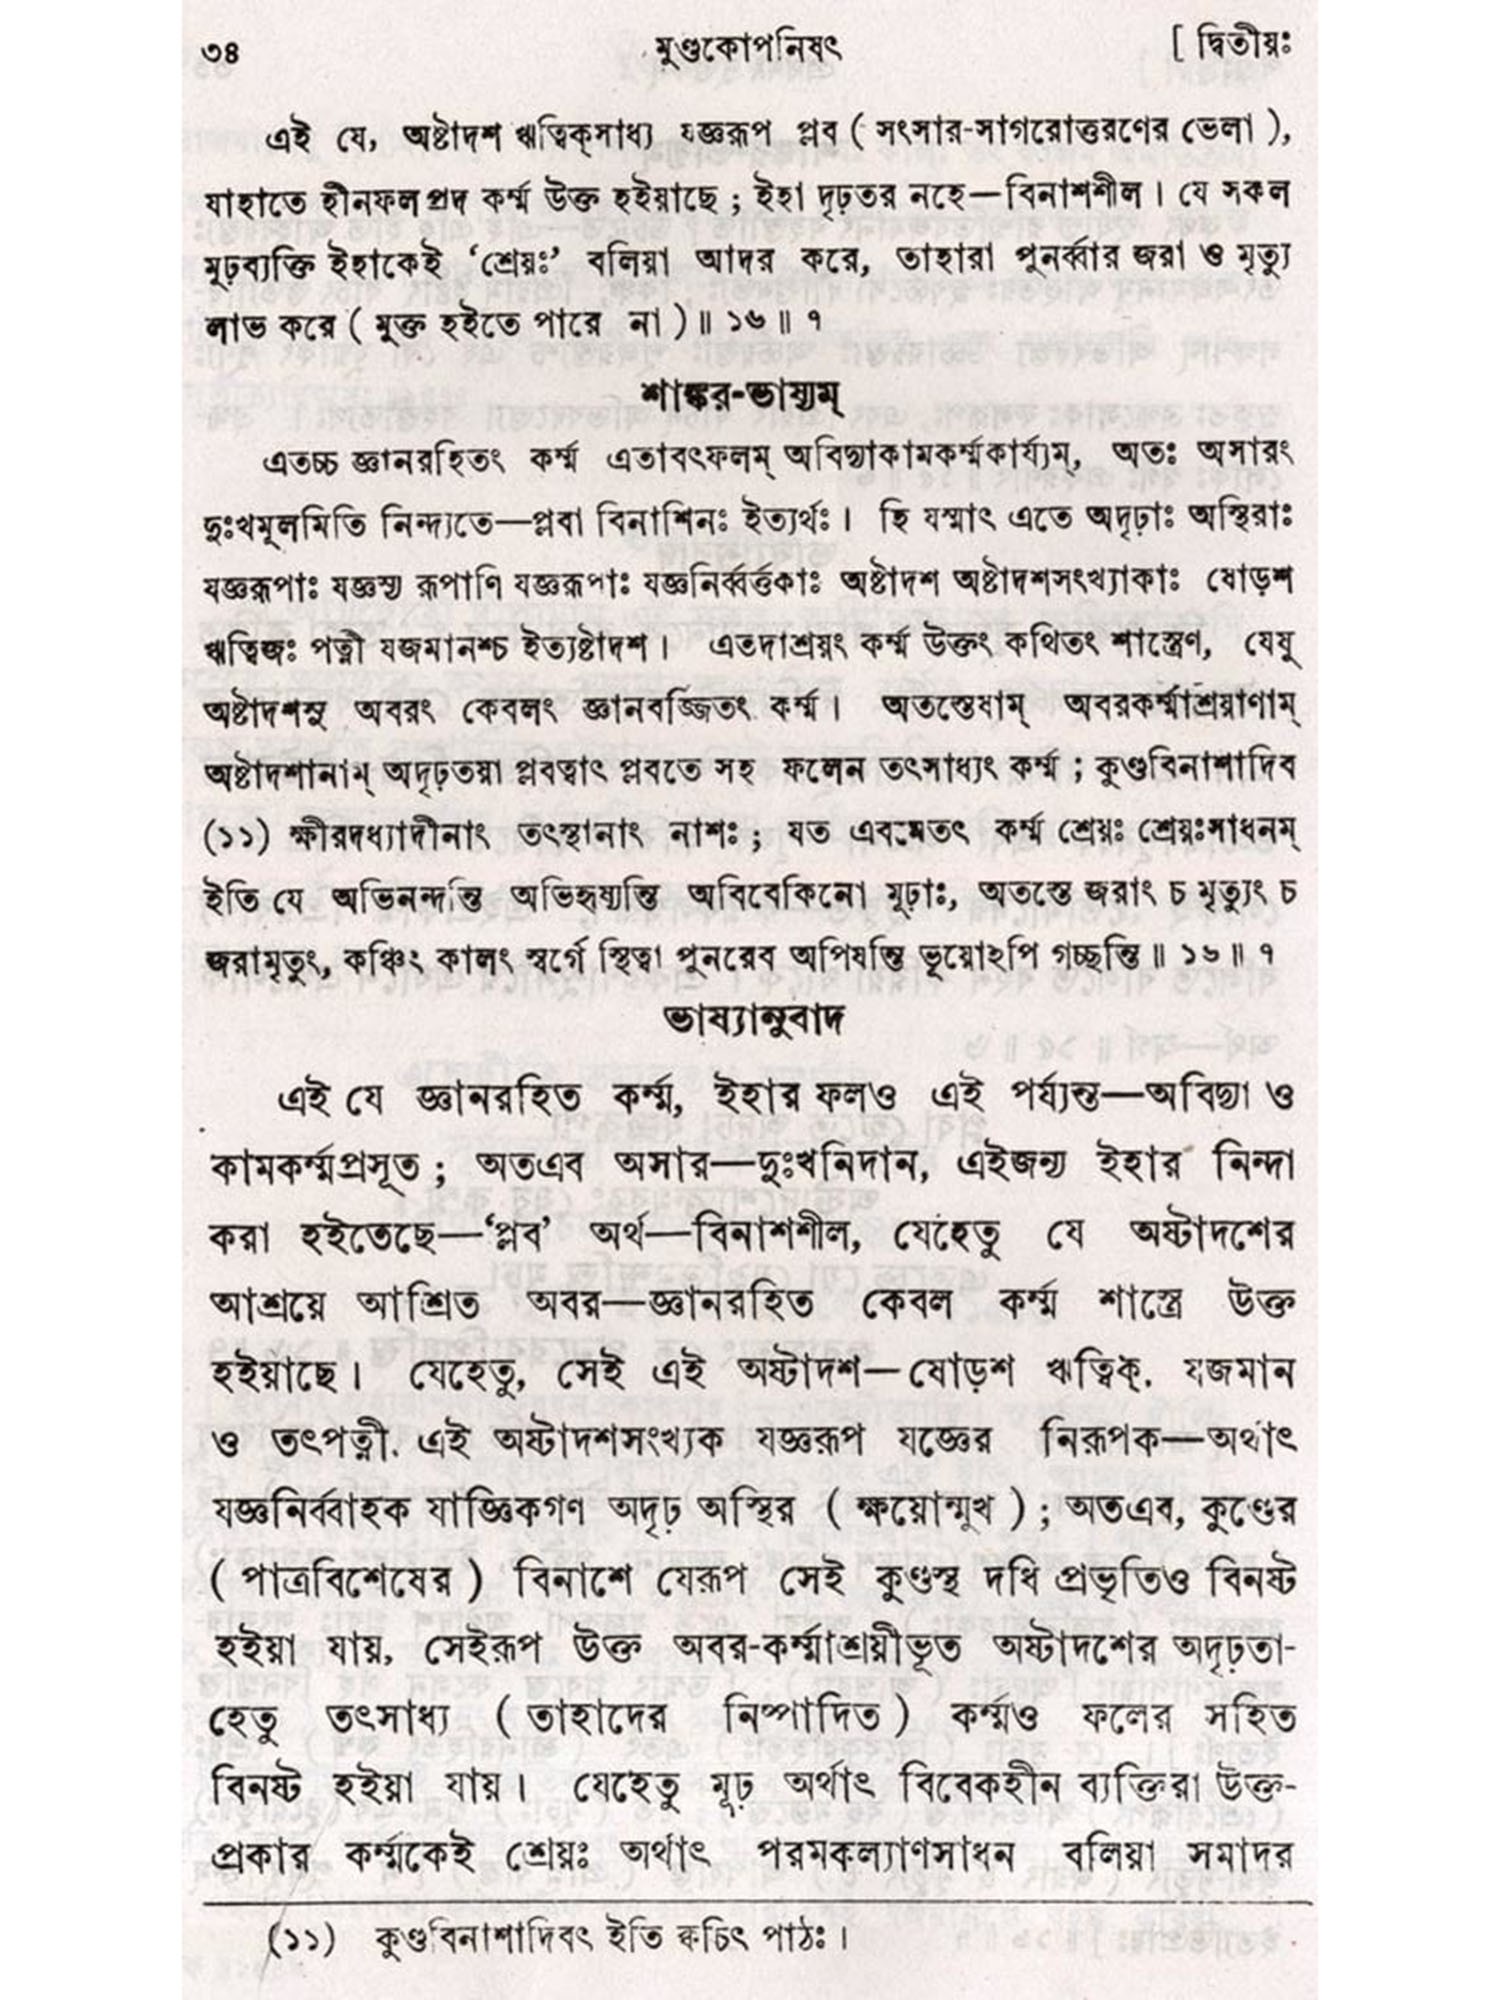 ৩৪ মুণ্ডকোপনিষৎ [ দ্বিতীয়ঃ
এই যে, অষ্টাদশ ঋত্বিক্‌সাধ্য যজ্ঞরূপ প্লব ( সংসার-সাগরোত্তরণের ভেলা ),
যাহাতে হীনফলপ্রদ কর্ম্ম উক্ত হইয়াছে ; ইহা দৃঢ়তর নহে—বিনাশশীল । যে সকল
মূঢ়ব্যক্তি ইহাকেই ‘শ্রেয়ঃ’ বলিয়া আদর করে, তাহারা পুনর্ব্বার জরা ও মৃত্যু
লাভ করে ( মুক্ত হইতে পারে না ) ॥ ১৬ ॥ ৭
শাঙ্কর-ভাষ্যম্
এতচ্চ জ্ঞানরহিতং কর্ম্ম এতাবৎফলম্ অবিদ্যাকামকর্ম্মকার্য্যম্, অতঃ অসারং
দুঃখমূলমিতি নিন্দ্যতে—প্লবা বিনাশিনঃ ইত্যর্থঃ । হি যস্মাৎ এতে অদৃঢ়াঃ অস্থিরাঃ
যজ্ঞরূপাঃ যজ্ঞস্য রূপাণি যজ্ঞরূপাঃ যজ্ঞনির্ব্বর্ত্তকাঃ অষ্টাদশ অষ্টাদশসংখ্যাকাঃ ষোড়শ
ঋত্বিজঃ পত্নী যজমানশ্চ ইত্যষ্টাদশ । এতদাশ্রয়ং কর্ম্ম উক্তং কথিতং শাস্ত্রেণ, যেষু
অষ্টাদশসু অবরং কেবলং জ্ঞানবর্জ্জিতং কর্ম্ম । অতস্তেষাম্ অবরকর্ম্মাশ্রয়াণাম্
অষ্টাদশানাম্ অদৃঢ়তয়া প্লবত্বাৎ প্লবতে সহ ফলেন তৎসাধ্যং কর্ম্ম ; কুণ্ডবিনাশাদিব
(১১) ক্ষীরদধ্যাদীনাং তৎস্থানাং নাশঃ ; যত এবমেতৎ কর্ম্ম শ্রেয়ঃ শ্রেয়ঃসাধনম্
ইতি যে অভিনন্দন্তি অভিহৃষ্যন্তি অবিবেকিনো মূঢ়াঃ, অতস্তে জরাং চ মৃত্যুং চ
জরামৃত্যুং, কঞ্চিং কালং স্বর্গে স্থিত্বা পুনরেব অপিযন্তি ভূয়োঽপি গচ্ছন্তি ॥ ১৬ ॥ ৭
ভাষ্যানুবাদ
এই যে জ্ঞানরহিত কর্ম্ম, ইহার ফলও এই পর্য্যন্ত—অবিদ্যা ও
কামকর্ম্মপ্রসূত ; অতএব অসার—দুঃখনিদান, এইজন্য ইহার নিন্দা
করা হইতেছে—‘প্লব’ অর্থ—বিনাশশীল, যেহেতু যে অষ্টাদশের
আশ্রয়ে আশ্রিত অবর—জ্ঞানরহিত কেবল কর্ম্ম শাস্ত্রে উক্ত
হইয়াছে । যেহেতু, সেই এই অষ্টাদশ—ষোড়শ ঋত্বিক্, যজমান
ও তৎপত্নী, এই অষ্টাদশসংখ্যক যজ্ঞরূপ যজ্ঞের নিরূপক—অর্থাৎ
যজ্ঞনির্ব্বাহক যাজ্ঞিকগণ অদৃঢ় অস্থির ( ক্ষয়োন্মুখ ) ; অতএব, কুণ্ডের
( পাত্রবিশেষের ) বিনাশে যেরূপ সেই কুণ্ডস্থ দধি প্রভৃতিও বিনষ্ট
হইয়া যায়, সেইরূপ উক্ত অবর-কর্ম্মাশ্রয়ীভূত অষ্টাদশের অদৃঢ়তা-
হেতু তৎসাধ্য ( তাহাদের নিষ্পাদিত ) কর্ম্মও ফলের সহিত
বিনষ্ট হইয়া যায় । যেহেতু মূঢ় অর্থাৎ বিবেকহীন ব্যক্তিরা উক্ত-
প্রকার কর্ম্মকেই শ্রেয়ঃ অর্থাৎ পরমকল্যাণসাধন বলিয়া সমাদর
(১১) কুণ্ডবিনাশাদিবৎ ইতি ক্বচিৎ পাঠঃ ।